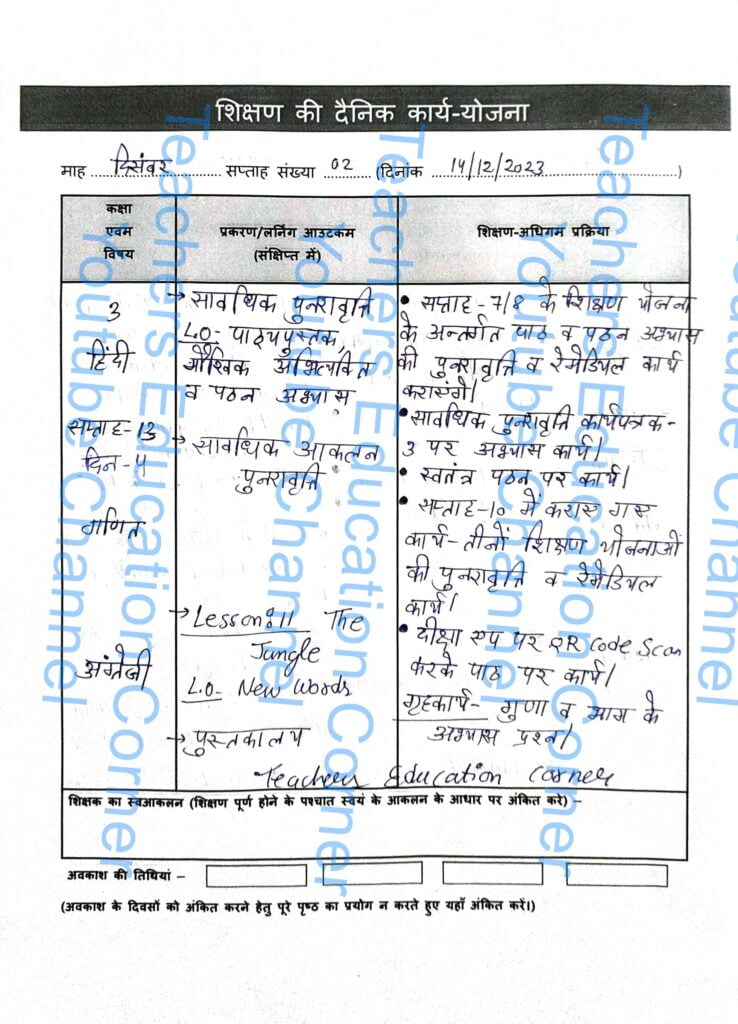 शिक्षण की दैनिक कार्य-योजना
माह दिसंबर सप्ताह संख्या 02 (दिनांक 14/12/2023)
कक्षा
एवम
विषय
प्रकरण/लर्निंग आउटकम
(संक्षिप्त में)
शिक्षण-अधिगम प्रक्रिया
3
हिंदी
सप्ताह-13
दिन-4
गणित
अंग्रेजी
→ सावधिक पुनरावृत्ति
L.O- पाठ्यपुस्तक,
मौखिक अभिव्यक्ति
व पठन अभ्यास
→ सावधिक आकलन
पुनरावृत्ति
→ Lesson:11 The
Jungle
L.O- New Words
→ पुस्तकालय
• सप्ताह-7/8 के शिक्षण योजना
के अन्तर्गत पाठ व पठन अभ्यास
की पुनरावृत्ति व रेमेडियल कार्य
कराएंगे।
• सावधिक पुनरावृत्ति कार्यपत्रक-
3 पर अभ्यास कार्य।
• स्वतंत्र पठन पर कार्य।
• सप्ताह-10 में कराए गए
कार्य-तीनों शिक्षण योजनाओं
की पुनरावृत्ति व रेमेडियल
कार्य।
• दीक्षा एप पर QR Code Scan
करके पाठ पर कार्य।
गृहकार्य- गुणा व भाग के
अभ्यास प्रश्न।
Teachers Education Corner
शिक्षक का स्वआकलन (शिक्षण पूर्ण होने के पश्चात स्वयं के आकलन के आधार पर अंकित करे) –
अवकाश की तिथियां –
(अवकाश के दिवसों को अंकित करने हेतु पूरे पृष्ठ का प्रयोग न करते हुए यहाँ अंकित करें।)
Teachers Education Corner
Youtube Channel
Teachers Education Corner
Youtube Channel
Teachers Education Corner
Youtube Channel